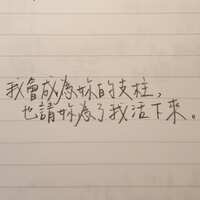 我會成為妳的支柱，
也請妳為了我活下來。